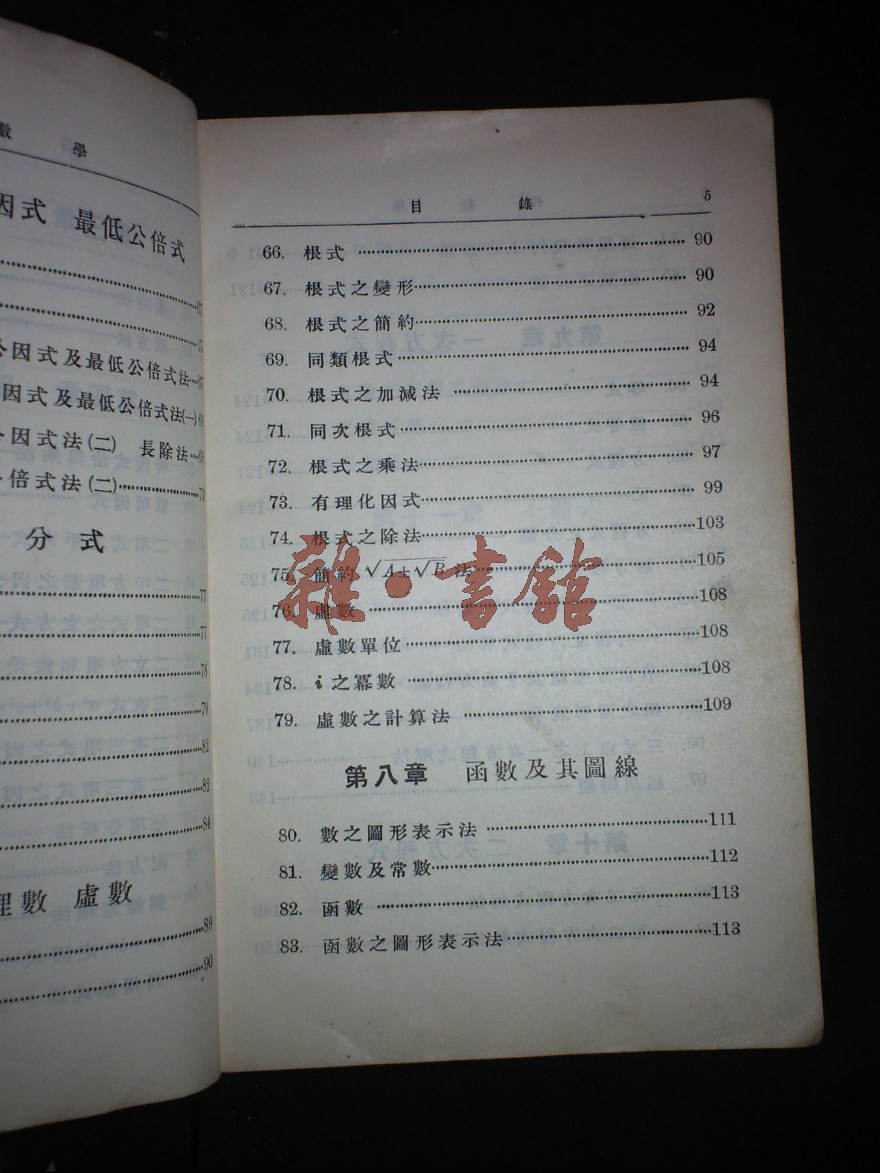 數
學
因式 最低公倍式
公因式及最低公倍式法
因式及最低公倍式法(一)
因式法(二) 長除法
倍式法(二)
分式
77
77
78
79
82
84
理數 虛數
89
90
目 錄 5
66. 根式 90
67. 根式之變形 90
68. 根式之簡約 92
69. 同類根式 94
70. 根式之加減法 94
71. 同次根式 96
72. 根式之乘法 97
73. 有理化因式 99
74. 根式之除法 103
75. 簡約 √A±√B 法 105
76. 虛數 108
77. 虛數單位 108
78. i之冪數 108
79. 虛數之計算法 109
第八章 函數及其圖線
80. 數之圖形表示法 111
81. 變數及常數 112
82. 函數 113
83. 函數之圖形表示法 113
雜·書館